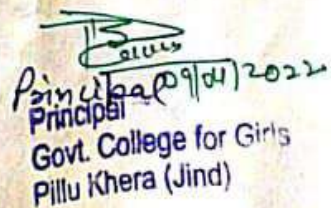 Principal 09/04/2022
Principal
Govt. College for Girls
Pillu Khera (Jind)